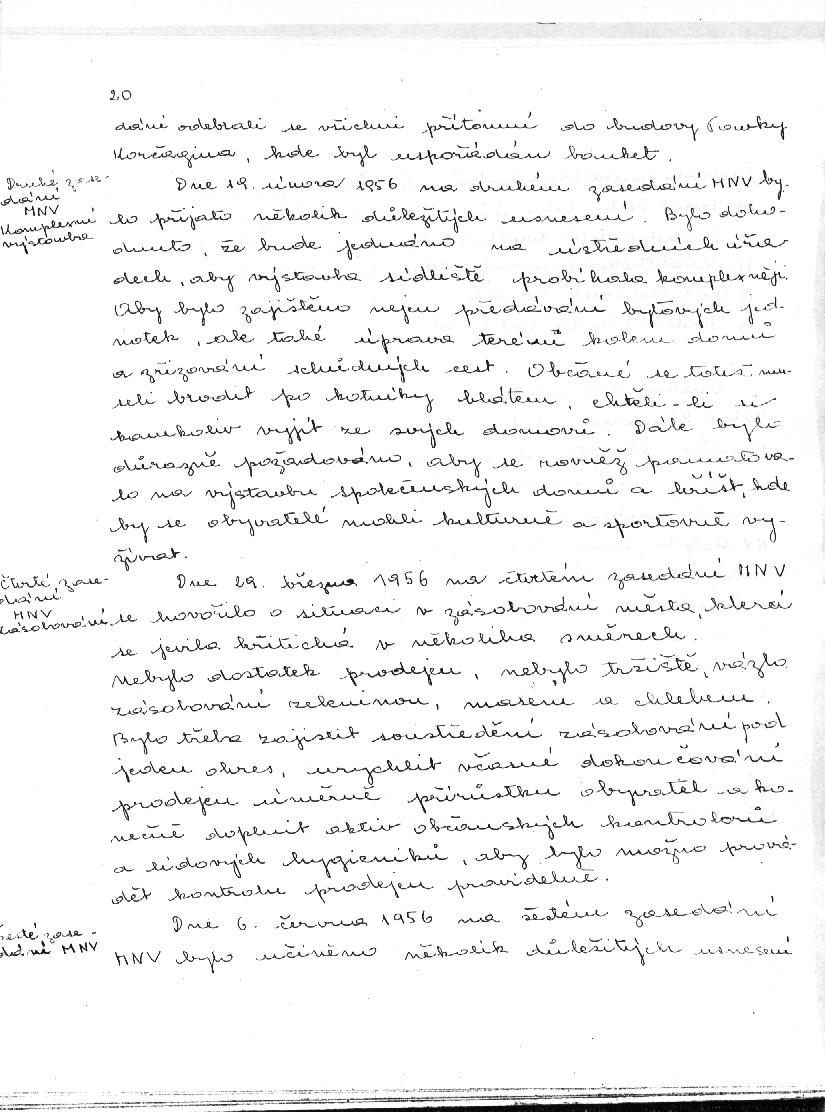 20
dání odebrali se všichni přítomní do budovy Pavky
Korčagina, kde byl uspořádán banket.
Druhé zase-
dání
MNV
Komplexní
výstavba
Dne 19. února 1956 na druhém zasedání MNV by-
lo přijato několik důležitých usnesení. Bylo doho-
dnuto, že bude jednáno na ústředních úřa-
dech, aby výstavba sídliště probíhala komplexněji.
Aby bylo zajištěno nejen předávání bytových jed-
notek, ale také úprava terénů kolem domů
a zřizování schůdných cest. Občané se totiž mu-
seli brodit po kotníky blátem, chtěli-li si
kamkoliv vyjít ze svých domovů. Dále bylo
důrazně požadováno, aby se rovněž pamatova-
lo na výstavbu společenských domů a hřišť, kde
by se obyvatelé mohli kulturně a sportovně vy-
žívat.
Čtvrté zase-
dání
MNV
Zásobování
Dne 29. března 1956 na čtvrtém zasedání MNV
se hovořilo o situaci v zásobování města, která
se jevila kritická v několika směrech.
Nebylo dostatek prodejen, nebylo tržiště, vázlo
zásobování zeleninou, masem a chlebem.
Bylo třeba zajistit soustředění zásobování pod
jeden okres, urychlit včasné dokončování
prodejen úměrně přírůstku obyvatel a ko-
nečně doplnit aktiv občanských kontrolorů
a lidových hygieniků, aby bylo možno prová-
dět kontrolu prodejen pravidelně.
Šesté zase-
dání MNV
Dne 6. června 1956 na šestém zasedání
MNV bylo učiněno několik důležitých usnesení